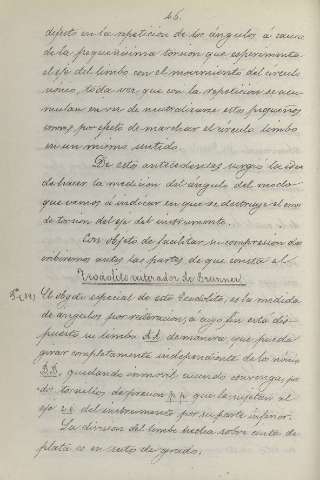 46.
defecto en la repeticion de los ángulos á causa
de la pequeñisima torsion que esperimenta
el eje del limbo con el movimiento del circulo
vónico, toda vez que con la repeticion se acu-
mulan en vez de neutralizarse estos pequeños
errores por efecto de marchar el círculo limbo
en un mismo sentido.
De estos antecedentes surgió la idea
de hacer la medicion del ángulo del modo
que vamos á indicar en que se destruye el error
de torsion del eje del instrumento.
Con objeto de facilitar su compresion des
cribiremos antes las partes de que consta el
Teodolito reiterador de Brunner
El objeto especial de este Teodolito, es la medida
de ángulos por reiteracion, á cuyo fin está dis-
puesto su limbo de manera, que pueda
girar completamente independiente de los
B.B. quedando inmovil cuando convenga, por
dos tornillos de presion p.p. que lo sujetan al
eje del instrumento por su parte inferior.
La division del limbo hecha sobre cinta de
plata es en sexto de grado.